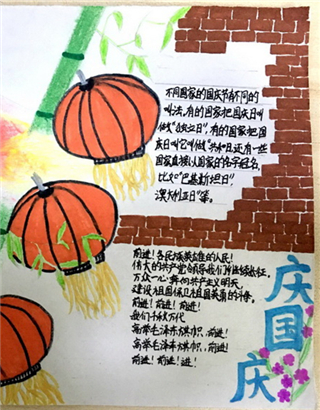 不同国家的国庆节有不同的
叫法。有的国家把国庆日叫
做“独立日”,有的国家把国
庆日叫它叫做“共和日,还有一些
国家直接以国家的名字冠名,
比如“巴基斯坦日”,
澳大利亚日”等。
前进!各民族英雄的人民!
伟大的共产党领导我们继续长征。
万众一心奔向共产主义明天,
建设祖国保卫祖国英勇的斗争。
前进!前进!前进!
我们千秋万代
高举毛泽东旗帜,前进!
高举毛泽东旗帜,前进!
前进!前进!进!
庆国庆